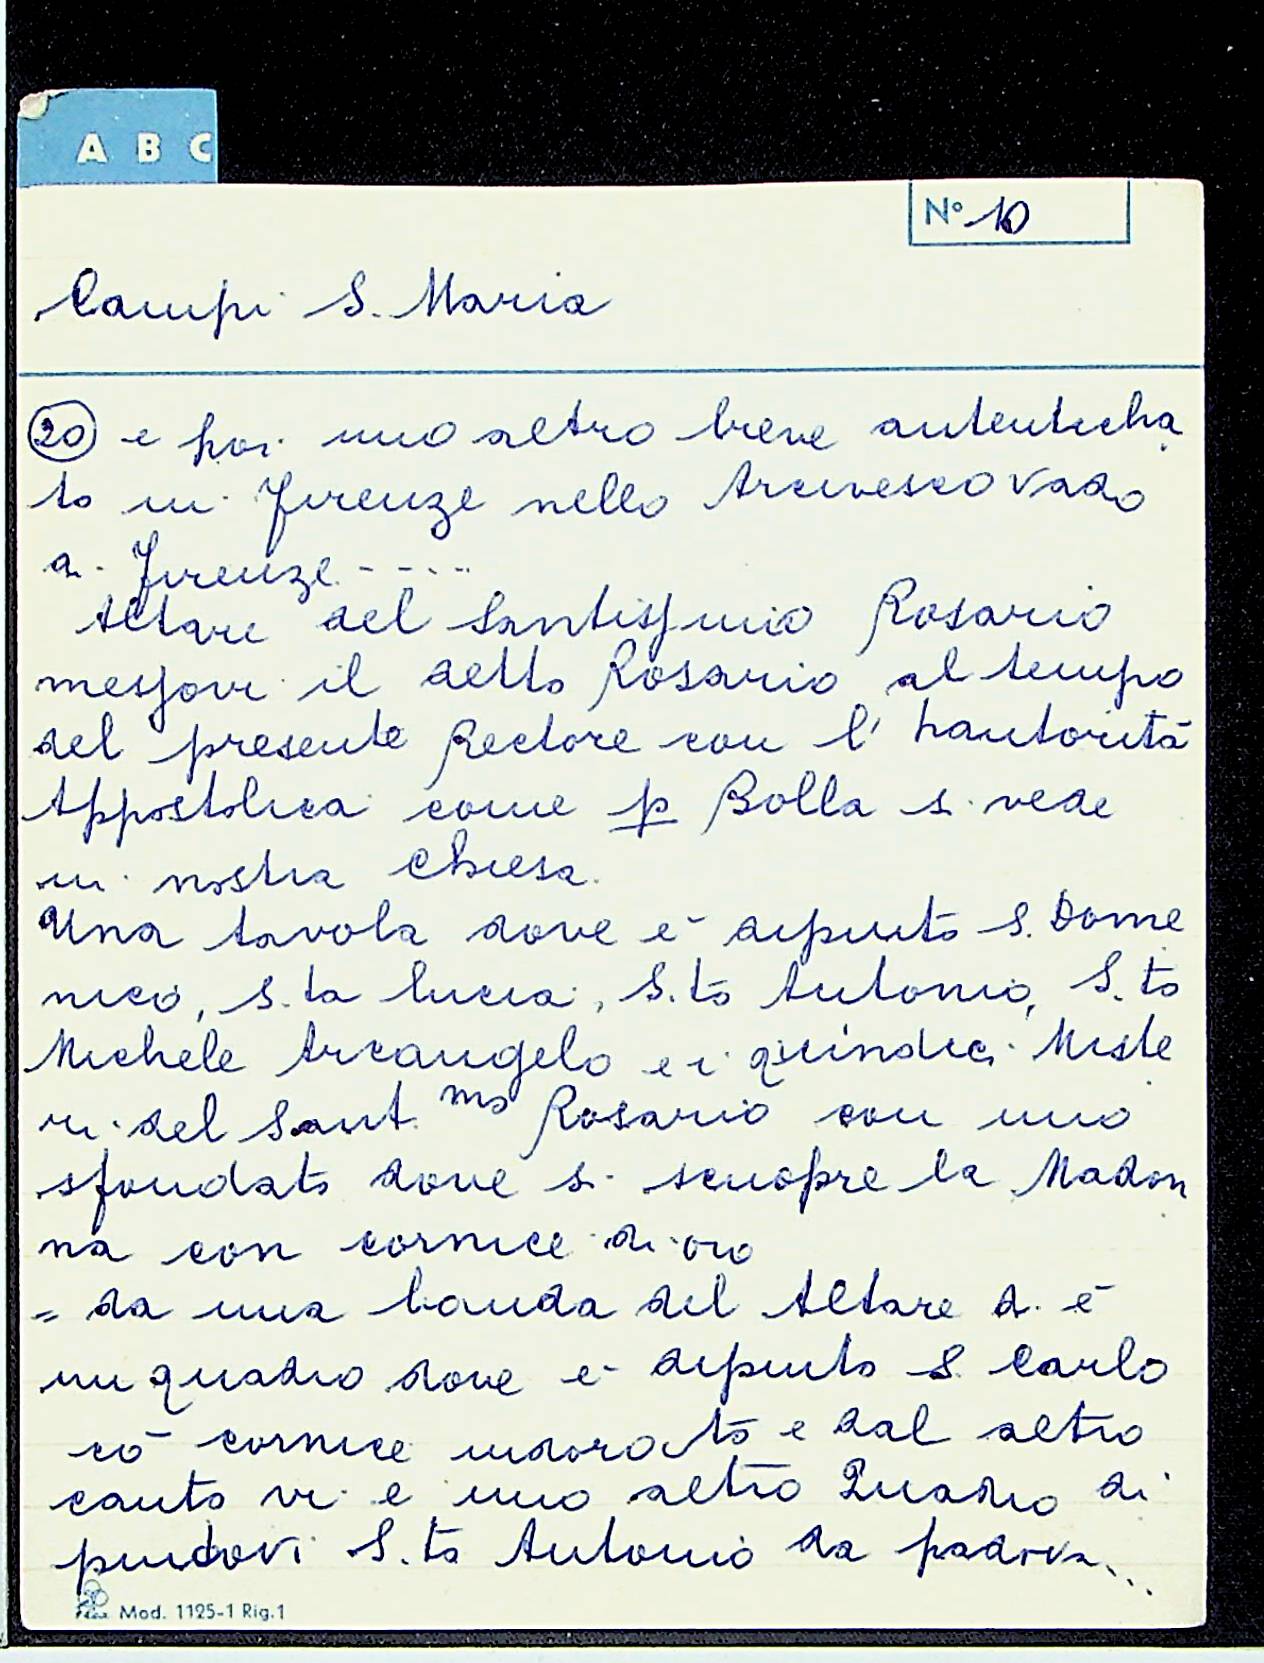 A B C
N° 10
Campi S. Maria
20 e poi uno altro breve autenticha
to in Firenze nello Arcivescovado
a Firenze - - - -
Altare del Santissimo Rosario
messovi il detto Rosario al tempo
del presente Rectore con l'hautorità
Appostolica come p Bolla si vede
in nostra Chiesa.
Una tavola dove è dipinto S. Dome
nico, S.ta Lucia, S.to Antonio, S.to
Michele Arcangelo e i quindici Miste
ri del Sant.mo Rosario con uno
sfondato dove si scuopre la Madon
na con cornice di oro
= da una banda del Altare di è
un quadro dove è dipinto S. Carlo
cō cornice indorato e dal altro
canto vi è uno altro Quadro di
pintovi S.to Antonio da padova...
Mod. 1125-1 Rig.1